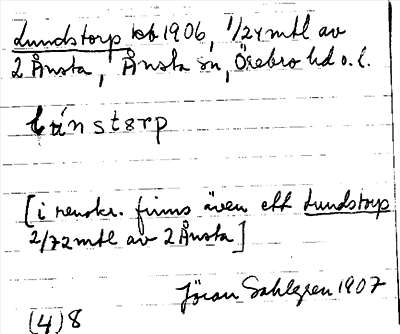 Lundstorp kb 1906, 1/24 mtl av
2 Ånsta, Ånsta sn, Örebro hd o. l.
lúnstərp
[i renskr. finns även ett Lundstorp
2/72 mtl av 2 Ånsta]
Jöran Sahlgren 1907
(4) 8